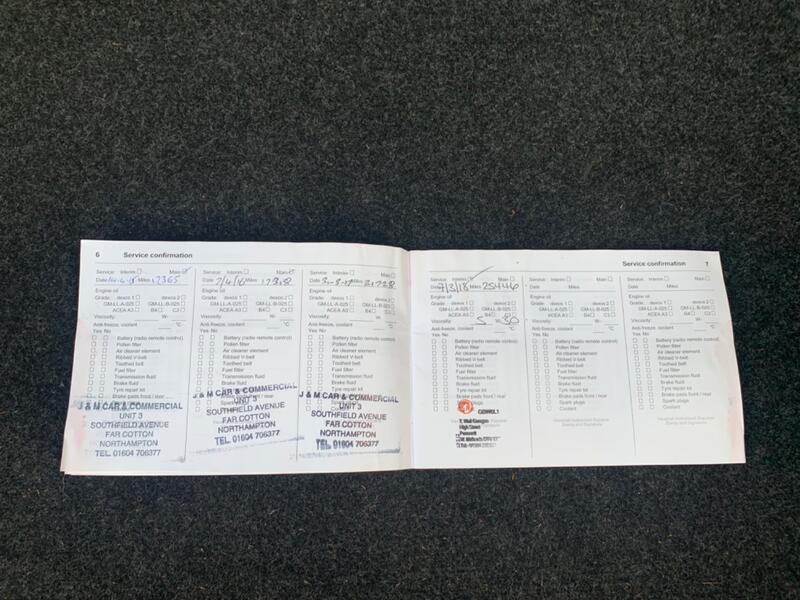 6 Service confirmation
Service: Interim Main
Date Miles
Engine oil
Grade: dexos 1 dexos 2
GM-LL-A-025 GM-LL-B-025
ACEA A3 B4 C3
Viscosity: W-
Anti-freeze, coolant °C
Yes No
Battery (radio remote control)
Pollen filter
Air cleaner element
Ribbed V-belt
Toothed belt
Fuel filter
Transmission fluid
Brake fluid
Tyre repair kit
Brake pads front / rear
J & M CAR & COMMERCIAL
UNIT 3
SOUTHFIELD AVENUE
FAR COTTON
NORTHAMPTON
TEL. 01604 706377
Service: Interim Main
Date 7/4/16 Miles
Engine oil
Grade: dexos 1 dexos 2
GM-LL-A-025 GM-LL-B-025
ACEA A3 B4 C3
Viscosity: W-
Anti-freeze, coolant °C
Yes No
Battery (radio remote control)
Pollen filter
Air cleaner element
Ribbed V-belt
Toothed belt
Fuel filter
Transmission fluid
Brake fluid
Tyre repair kit
J & M CAR & COMMERCIAL
UNIT 3
SOUTHFIELD AVENUE
FAR COTTON
NORTHAMPTON
TEL. 01604 706377
Service: Interim Main
Date Miles
Engine oil
Grade: dexos 1 dexos 2
GM-LL-A-025 GM-LL-B-025
ACEA A3 B4 C3
Viscosity: W-
Anti-freeze, coolant °C
Yes No
Battery (radio remote control)
Pollen filter
Air cleaner element
Ribbed V-belt
Toothed belt
Fuel filter
Transmission fluid
Brake fluid
Tyre repair kit
J & M CAR & COMMERCIAL
UNIT 3
SOUTHFIELD AVENUE
FAR COTTON
NORTHAMPTON
TEL. 01604 706377
Service confirmation 7
Service: Interim Main
Date 9/3/18 Miles
Engine oil
Grade: dexos 1 dexos 2
GM-LL-A-025 GM-LL-B-025
ACEA A3 B4 C3
Viscosity: 5 30
Anti-freeze, coolant °C
Yes No
Battery (radio remote control)
Pollen filter
Air cleaner element
Ribbed V-belt
Toothed belt
Fuel filter
Transmission fluid
Brake fluid
Tyre repair kit
Brake pads front / rear
High Street
Pensnett
Service: Interim Main
Date Miles
Engine oil
Grade: dexos 1 dexos 2
GM-LL-A-025 GM-LL-B-025
ACEA A3 B4 C3
Viscosity: W-
Anti-freeze, coolant °C
Yes No
Battery (radio remote control)
Pollen filter
Air cleaner element
Ribbed V-belt
Toothed belt
Fuel filter
Transmission fluid
Brake fluid
Tyre repair kit
Brake pads front / rear
Spark plugs
Coolant
Vauxhall Authorised Repairer
Stamp and Signature
Service: Interim Main
Date Miles
Engine oil
Grade: dexos 1 dexos 2
GM-LL-A-025 GM-LL-B-025
ACEA A3 B4 C3
Viscosity: W-
Anti-freeze, coolant °C
Yes No
Battery (radio remote control)
Pollen filter
Air cleaner element
Ribbed V-belt
Toothed belt
Fuel filter
Transmission fluid
Brake fluid
Tyre repair kit
Brake pads front / rear
Spark plugs
Coolant
Vauxhall Authorised Repairer
Stamp and Signature